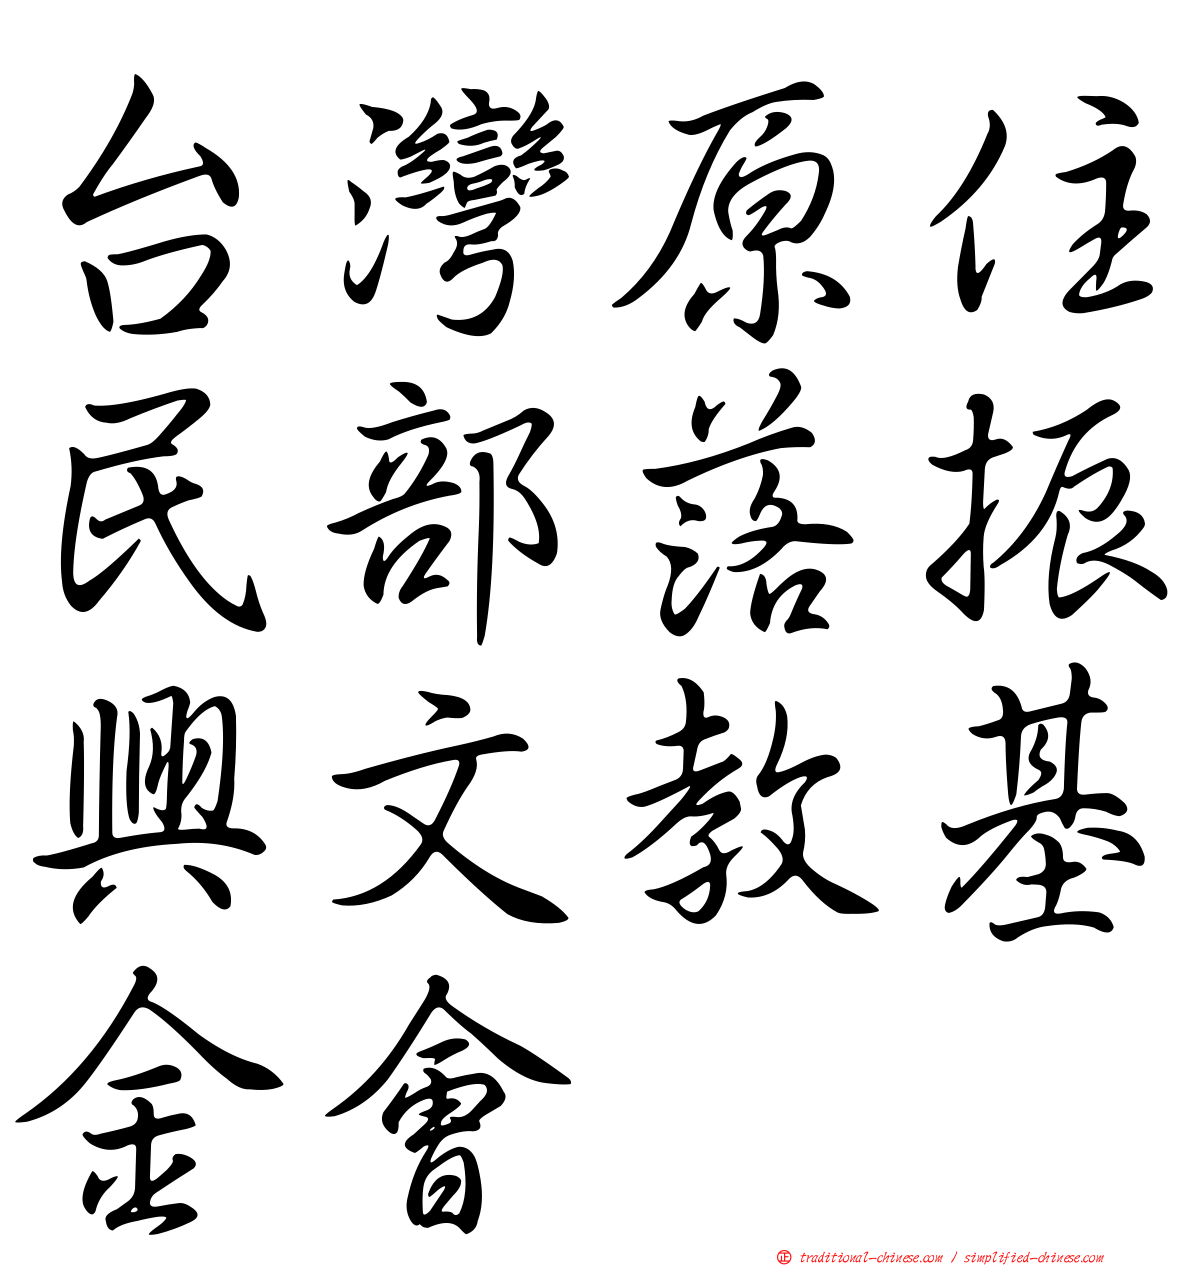 台灣原住
民部落振
興文教基
金會
正 traditional-chinese.com / simplified-chinese.com